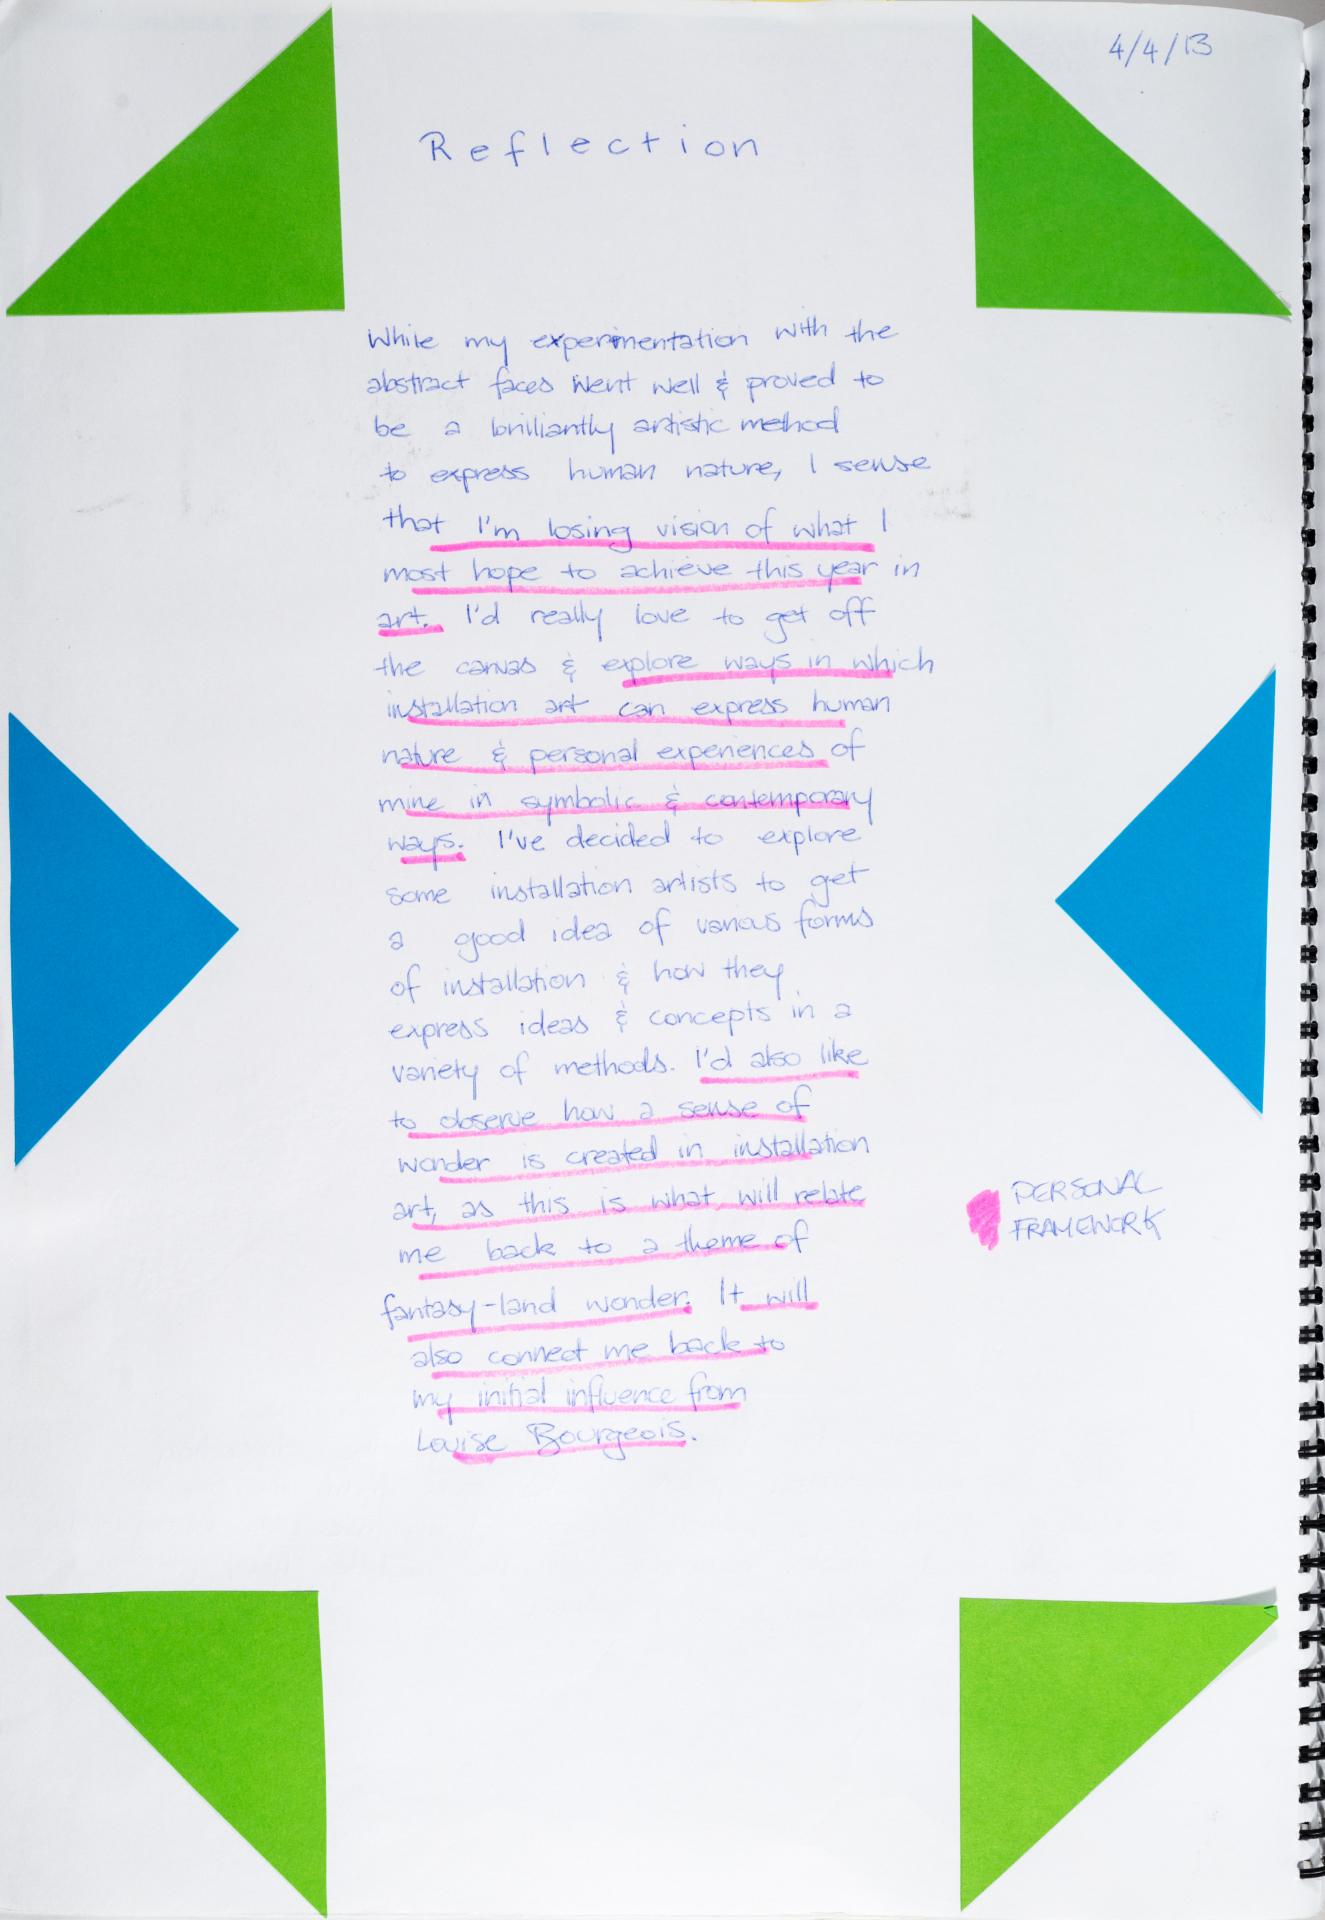 4/4/13
Reflection
While my experimentation with the
abstract faces went well & proved to
be a brilliantly artistic method
to express human nature, I sense
that I'm losing vision of what I
most hope to achieve this year in
art. I'd really love to get off
the canvas & explore ways in which
installation art can express human
nature & personal experiences of
mine in symbolic & contemporary
ways. I've decided to explore
some installation artists to get
a good idea of various forms
of installation & how they
express ideas & concepts in a
variety of methods. I'd also like
to observe how a sense of
wonder is created in installation
art, as this is what will relate
me back to a theme of
fantasy-land wonder. It will
also connect me back to
my initial influence from
Louise Bourgeois.
PERSONAL
FRAMEWORK